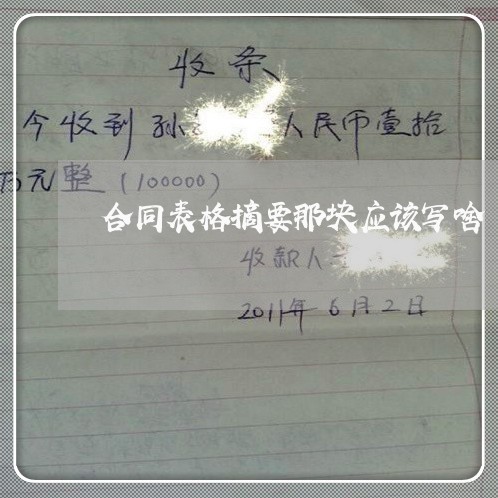 收条
今收到孙 人民币壹拾
万元整（100000）
合同表格摘要那块应该写啥
收款人
2011年6月2日